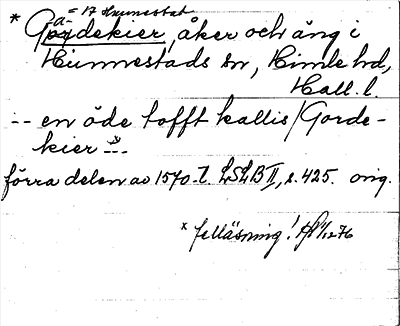 -a- = 17 Hunnestat
* Gordekier, åker och äng i
Hunnestads sn, Himle hd,
Hall. l.
-- en öde tofft kallis / Gorde-
kier * --
förra delen av 1570-t. LSLB II, s. 425. orig.
* felläsning! 1/12 76